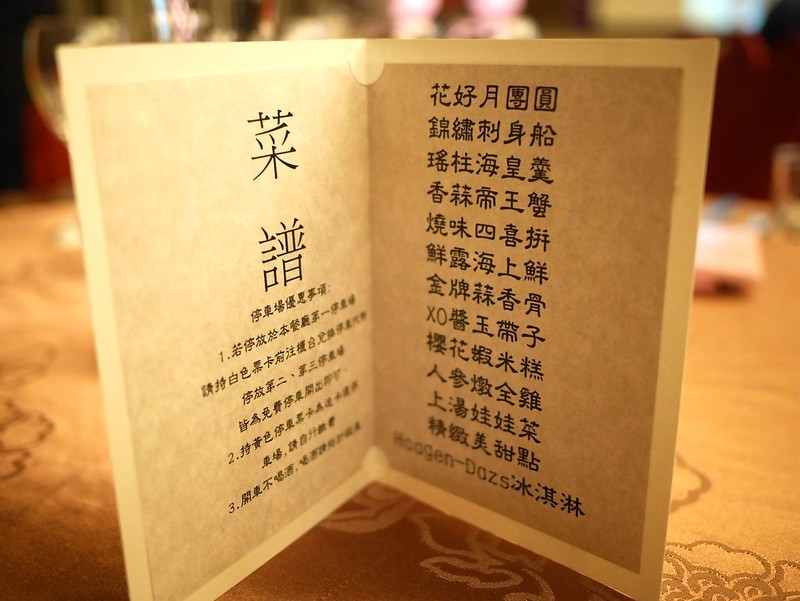 菜
譜
停車場優惠事項:
1.若停放於本餐廳第一停車場
請持白色票卡前往櫃台兌換停車代幣
停放第二、第三停車場
皆為免費停車開出即可
2.持黃色停車票卡為
車場,請自行繳費
3.開車不喝酒,喝酒
花好月團圓
錦繡刺身船
瑤柱海皇羹
香蒜帝王蟹
燒味四喜拼
鮮露海上鮮
金牌蒜香骨
XO醬玉帶子
櫻花蝦米糕
人參燉全雞
上湯娃娃菜
精緻美甜點
Haagen-Dazs冰淇淋